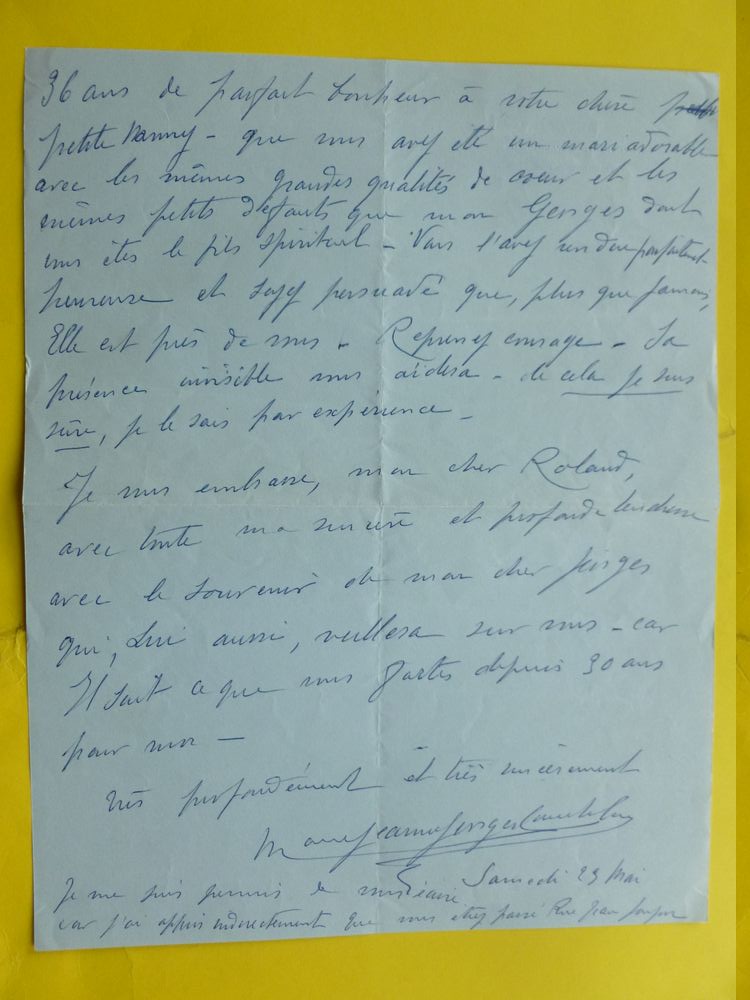 36 ans de parfait bonheur à votre chère
petite Nanny - que vous avez été un mari adorable
avec les mêmes grandes qualités de cœur et les
mêmes petits défauts que mon Georges dont
vous êtes le fils spirituel - Vous l'avez rendue parfaitement
heureuse et soyez persuadé que, plus que jamais,
Elle est près de vous - Reprenez courage - Sa
présence invisible vous aidera - de cela je suis
sûre, je le sais par expérience -
Je vous embrasse, mon cher Roland,
avec toute ma sincère et profonde tendresse
avec le souvenir de mon cher Georges
qui, Lui aussi, veillera sur vous - car
Il sait ce que vous faites depuis 30 ans
pour moi -
Très profondément et très sincèrement
Marie Jeanne Georges
Samedi 23 Mai
Je me suis permis de vous écrire
car j'ai appris indirectement que vous étiez passé Rue Jean